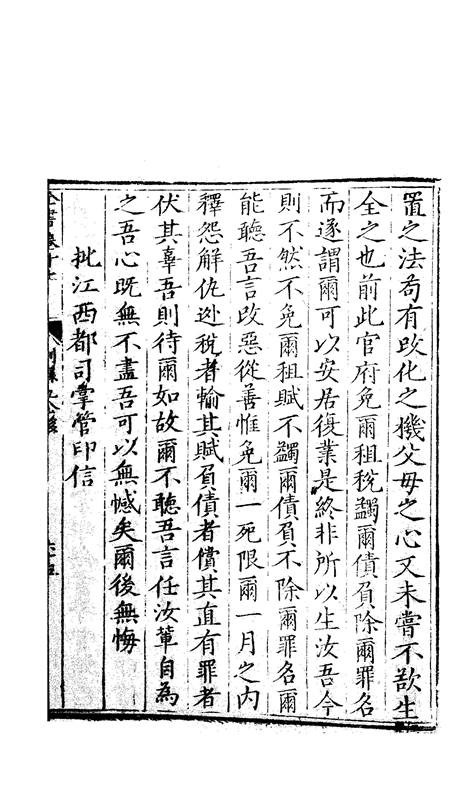 置之法苟有改化之機父母之心又未嘗不欲生
全之也前此官府免爾租稅蠲爾債負除爾罪名
而遂謂爾可以安居復業是終非所以生汝吾今
則不然不免爾租賦不蠲爾債負不除爾罪名爾
能聽吾言改惡從善惟免爾一死限爾一月之內
釋怨解仇逃稅者輸其賦負債者償其直有罪者
伏其辜吾則待爾如故爾不聽吾言任汝輩自為
之吾心既無不盡吾可以無憾矣爾後無悔
批江西都司掌管印信
全書卷十七